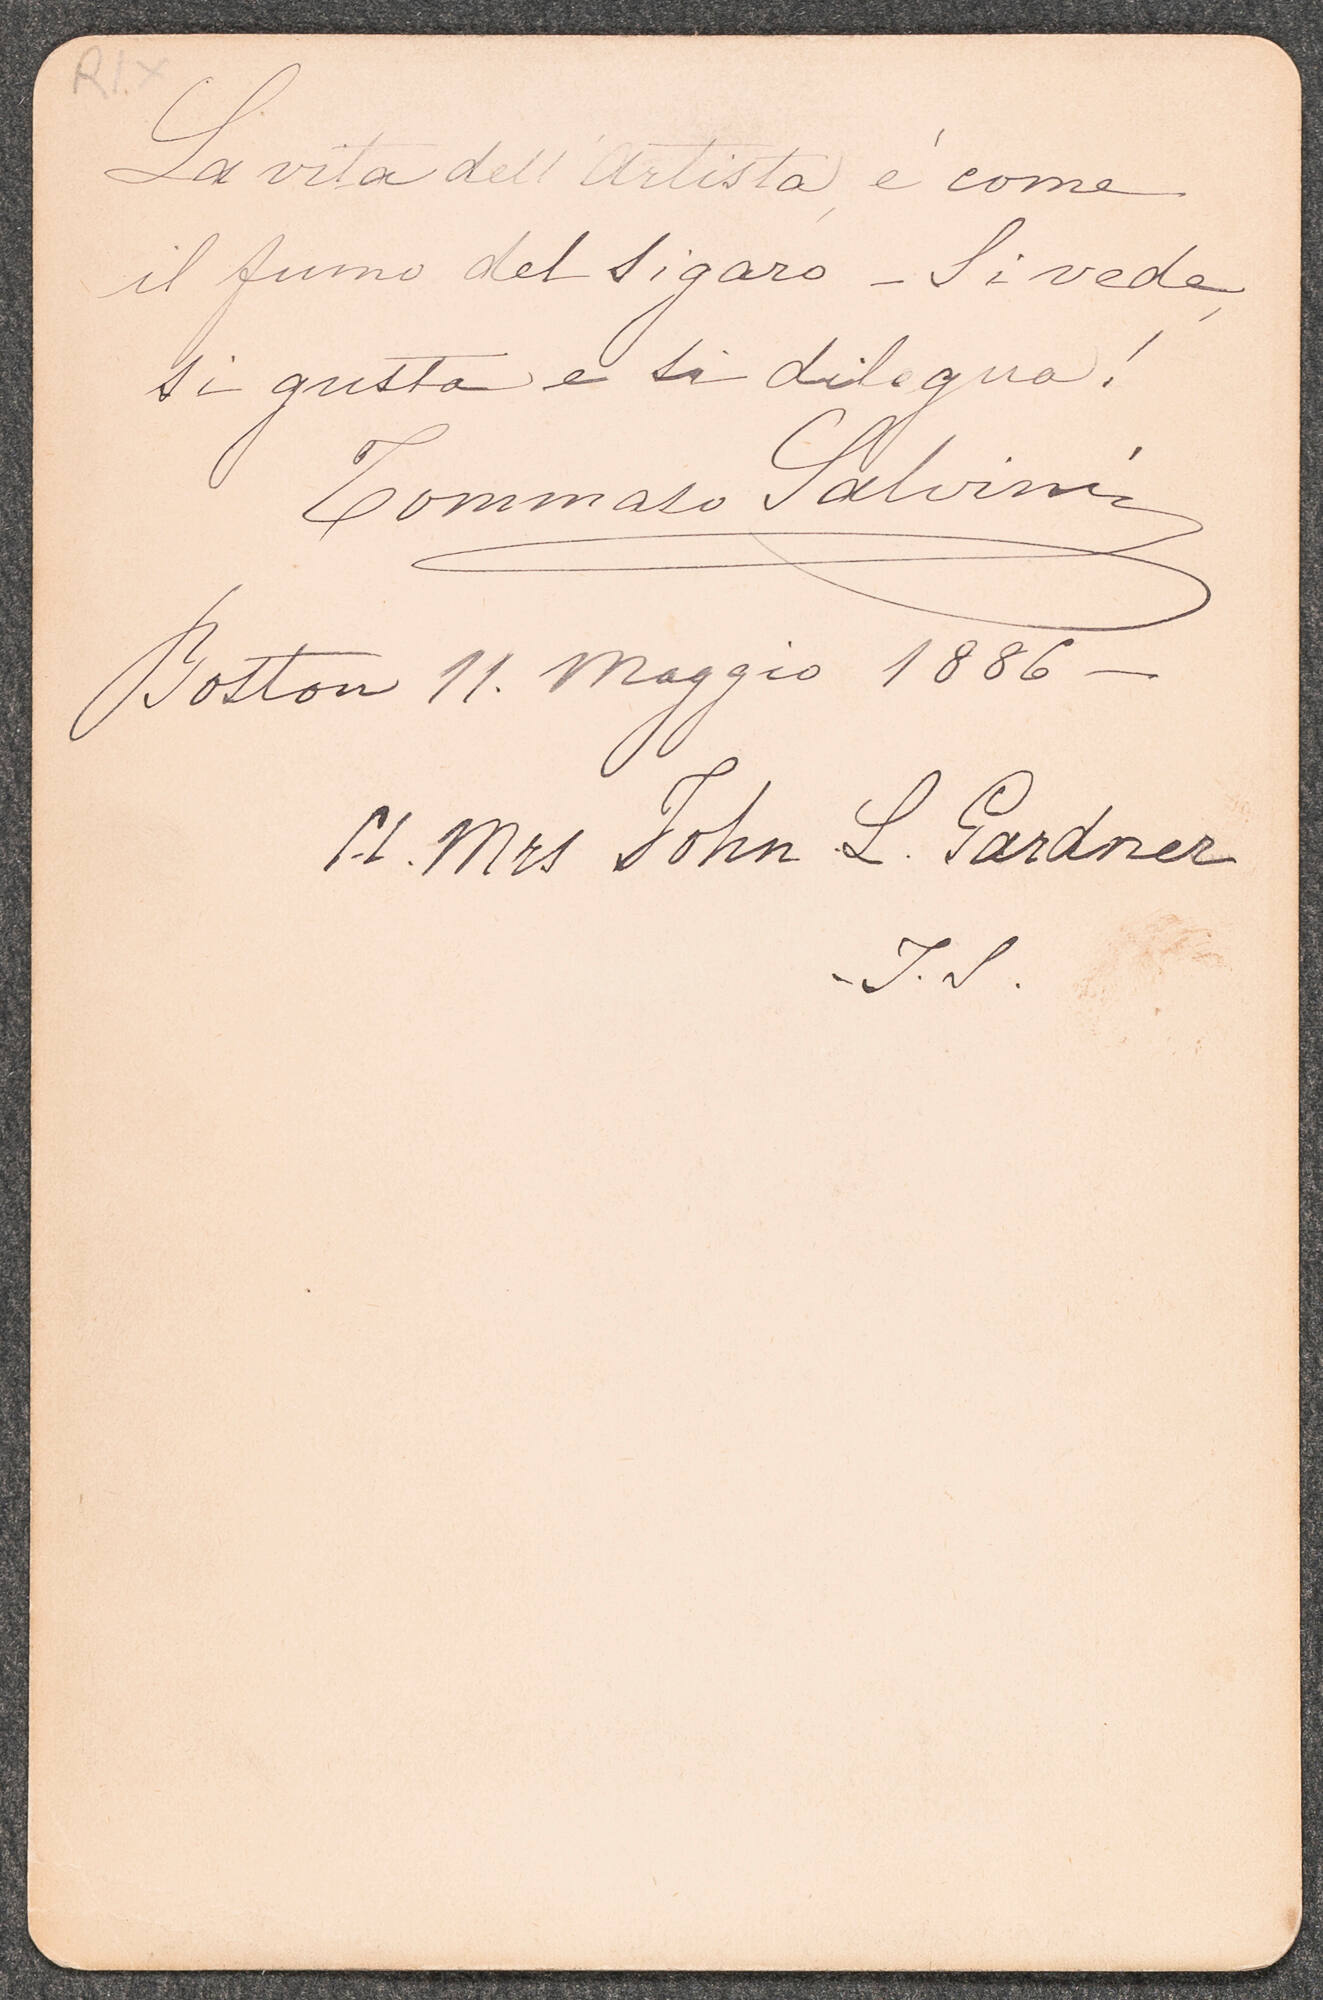 R1.x
La vita dell'Artista, é come
il fumo del sigaro – Si vede,
si gusta e si dilegua!
Tommaso Salvini
Boston 11. Maggio 1886 –
A. Mrs John L. Gardner
- T. S.